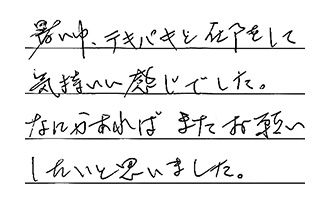 暑い中、テキパキと仕事をして
気持いい感じでした。
なにかあれば またお願い
したいと思いました。